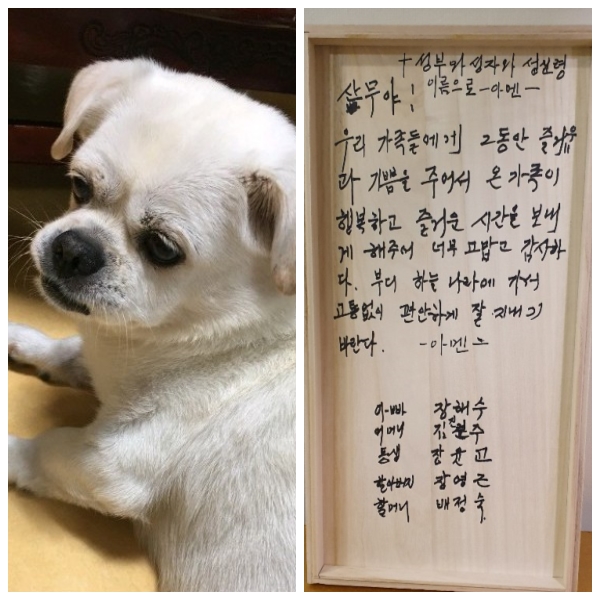 + 성부와 성자와 성신령
이름으로 -아멘-
삼무야!
우리 가족들에게 그동안 즐거움
과 기쁨을 주어서 온가족이
행복하고 즐거운 시간을 보내
게 해주서 너무 고맙고 감사하
다. 부디 하늘 나라에 가서
고통없이 편안하게 잘 지내기
바란다. -아멘-
아빠 장해수
어머니 김진주
동생 장윤교
할아버지 장영근
할머니 배정숙